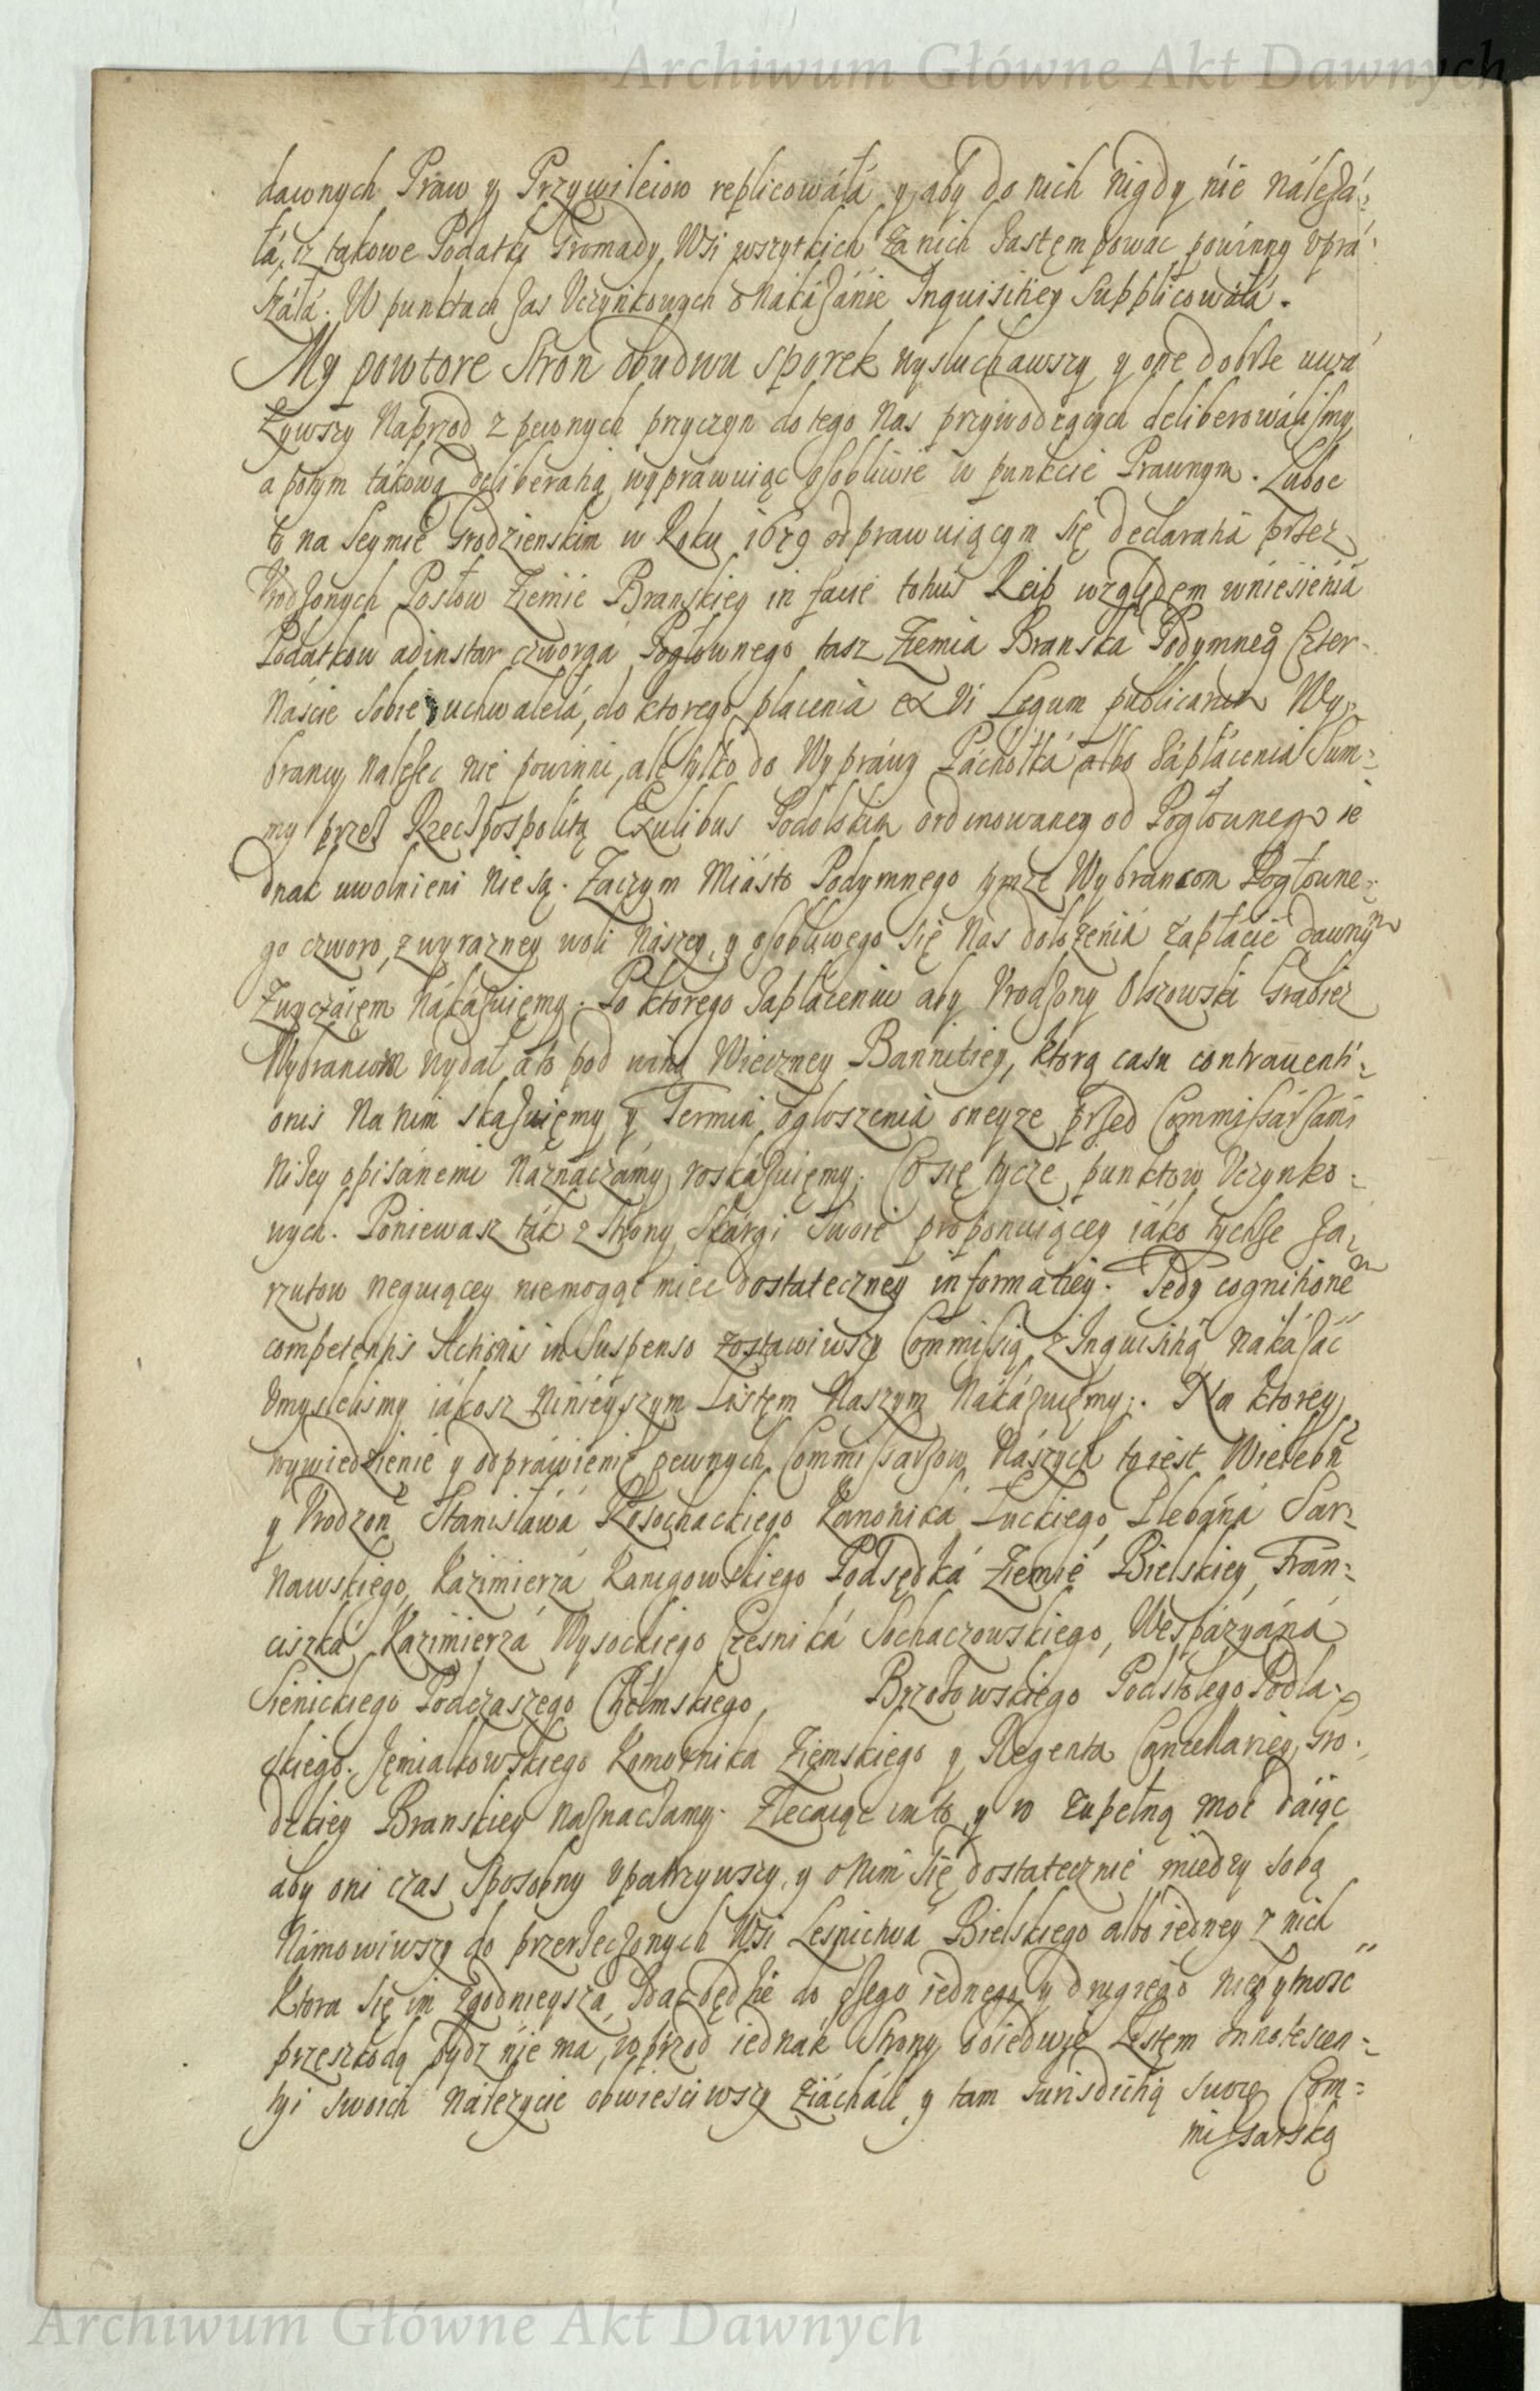 Archiwum Główne Akt Dawnych
dawnych Praw y Przywileiow replicowáłá y aby do nich nigdy nie náleżá-
łá, iz takowe Podatki Gromady Wsi wszytkich za nich zastempowac powinny vpra-
száłá. W punktach zas Vczynkowych o nakázánie Inquisitiey Supplicowáłá.
My powtore Stron obudwu sporek wysłuchawszy y one dobrze uwa-
żywszy Naprzod z pewnych przyczyn do tego Nas przywodzących deliberowálismy,
a potym tákową deliberatią wyprawuiąc osobliwie w punkcie Prawnym. Luboc
to na Seymie Grodzienskim w Roku 1679 odprawuiącym się declaratia przez
Vrodzonych Posłow Ziemie Branskiey in facie totius Reip względem wniesienia
Podatkow adinstar czworga Pogłownego tasz Ziemia Branska Podymneg Czter-
náscie Sobie uchwaleła, do ktorego płacenia ex vi Legum publicarum Wy-
brancy nalezec nie powinni, ale tylko do Wyprawy Páchołká albo zápłácenia Sum-
my przez Rzeczpospolitą Exulibus Podolskim ordinowaney od Pogłownego ie
dnak uwolnieni nie są. Zaczym Miásto Podymnego tymze Wybrancom Pogłowne-
go czworo, z wyrazney woli Nászey, y osobliwego się Nas dołożenia zapłacić dawnym
Zwyczaięm Nákázuięmy. Po ktorego zapłáceniu aby Vrodzony Olszowski Grabiez
Wybrancom wydał, a to pod winą Wieczney Bannitiey, ktorą casu contraventi-
onis na nim skazuięmy y Termin ogłoszenia oneyze przed Commissarzámi
niżey opisánemi Náznáczámy, roskázuięmy. Co się tycze punktow Vczynko-
wych. Poniewasz ták z strony Skárgi swoie proponuiącey iáko tychże Zá-
rzutow neguiącey niemogąc miec dostateczney informatiey. Tedy cognitionem
competentis Actionis in Suspenso zostawiwszy Commisią z Inquisitią nakázáć
Vmyslelismy iákosz Ninieyszym Listęm Naszym Nákázuięmy. Na ktorey
wywiedzienie y odpráwienie pewnych Commissarzow Nászych to iest Wielebn
y Vrodzon Stanisłáwá Rosochackiego Kanoniká Łuckiego Plebáná Sar-
nawskiego, Kazimierzá Kanigowskiego Podsędká Ziemie Bielskiey, Fran-
ciszká Kazimierzá Wysockiego Czesniká Sochaczowskiego, Wespázyáná
Sienickiego Podczaszego Chełmskiego, Brzozowskiego Podstolego Podla-
skiego. Sęmiatkowskiego Komornika Ziemskiego y Regenta Cancellariey Gro-
dzkiey Branskiey naznaczamy. Zlecaiąc im to, y w zupełną moc dáiąc
aby oni czas sposobny upatrzywszy, y o nim się dostatecznie między sobą
Námowiwszy do przerzeczonych Wsi Lesnictwá Bielskiego albo iedney z nich
Ktora się im zgodnieysza zdac będzie do czego iednego y drugiego niebytność
przeszkodą bydz nie ma, wprzod iednák Strony obiedwie Listęm Innotescen-
tyi swoich náleżycie obwiesciwszy ziácháli, y tam Iurisdictią swoię Com-
missarską
Archiwum Główne Akt Dawnych